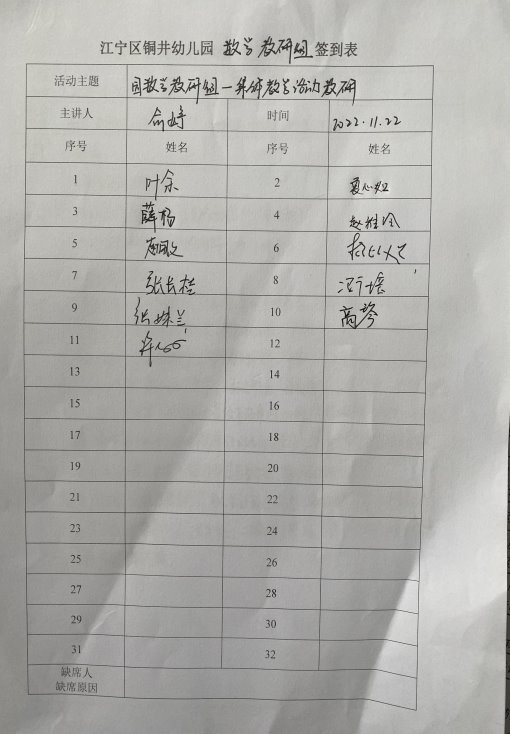 江宁区铜井幼儿园 数学教研组 签到表
活动主题 园数学教研组一集体教学活动教研
主讲人 俞婷 时间 2022.11.22
序号 姓名 序号 姓名
1 叶余 2
3 薛杨 4
5 6
7 张长桂 8
9 张姝兰 10 高琴
11 12
13 14
15 16
17 18
19 20
21 22
23 24
25 26
27 28
29 30
31 32
缺席人
缺席原因